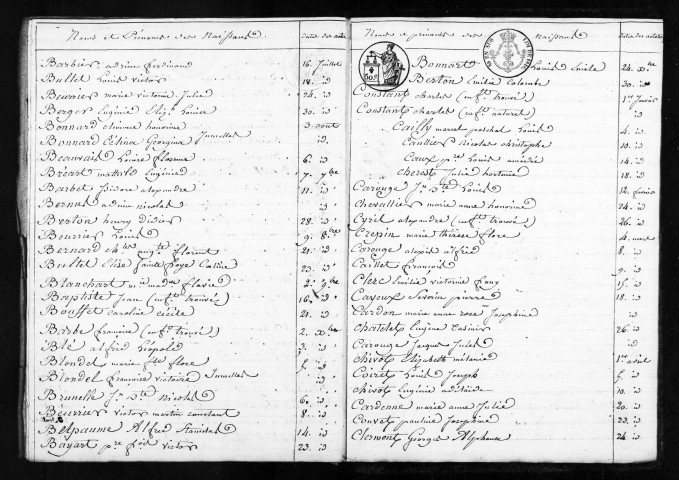 Noms et Prénoms des Naissants
dates des actes
Barbier adrien ferdinand 16 Juillet
Bullet Louis victor 18 id
Beurrier marie victoire Julie 24 id
Berger Eugénie Eliz. Louise 30 id
Bonnard clémence honorine 3 aout
Bonnard Célina Georgina Jumelles id
Beauvais Louise florine 6 id
Bréart Eugénie 7 7bre
Barbet Isidore alexandre 11 id
Bernus adrien nicolas id
Berton henry didier 28 id
Beurrier Louis 9 8bre
Bernard aug.te florent 21 id
Bultel Elise Sainte foye 23 id
Blanchart flavie 2 9bre
Baptiste Jean (enf.t trouvé) 16 id
Bouffet caroline cécile 21 id
Barbe francine (enf.t trouvé) 2 Xbre
Blé alfred Léopold 3 id
Blondel marie flore 5 id
Blondel francoise victoire Jumelles id
Brunelle J.n B.te nicolas 6 id
Beurrier victor martin constant 8 id
Belpaume Alfred Stanislas 14 id
Bayart p.re f.ois victor 23 id
Noms et prénoms des Naissants
dates des actes
Bonnart Louis Emile 24 Xbre
Berton Emilie Colombe 30 id
Constant charles (enf.t trouvé) 1er Janvier
Constant charles (enf.t naturel) id
Cailly marcel paschal Louis 4 id
Caullier nicolas christophe 10 id
Caux p.re Louis amédée 14 id
cherest Julie hortense 18 id
Carouge J.n B.te Louis 12 fevrier
Chevallier marie anne honorine 24 id
Cyril alexandre (enf.t trouvé) 26 id
Crepin marie thérèse flore 4 mars
Carouge alexis alfred 8 id
Caillet francois 9 id
Clerc Emilie victorine fany 15 id
Cayeux Sevrin pierre 18 id
Cardon marie anne rose Josephine id
Chatelet Eugène Casimir 26 id
Carouge Jacques Jules id
chivot Elizabeth mélanie 1er avril
Coiret Louis Joseph 5 id
chivot Eugénie adélaïde 10 id
Cardenne marie anne Julie 20 id
Couvet pauline Josephine 23 id
Clermont Georges Alphonse 24 id